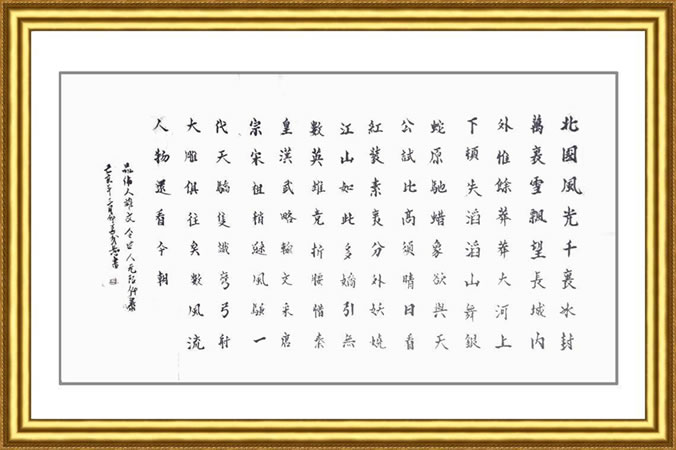 北國風光千裏冰封
萬裏雪飄望長城內
外惟餘莽莽大河上
下頓失滔滔山舞銀
蛇原馳蜡象欲與天
公試比高須晴日看
紅裝素裹分外妖嬈
江山如此多嬌引無
數英雄竟折腰惜秦
皇漢武略輸文采唐
宗宋祖稍遜風騷一
代天驕隻識彎弓射
大雕俱往矣數風流
人物還看今朝
偉人雄文令世人
書